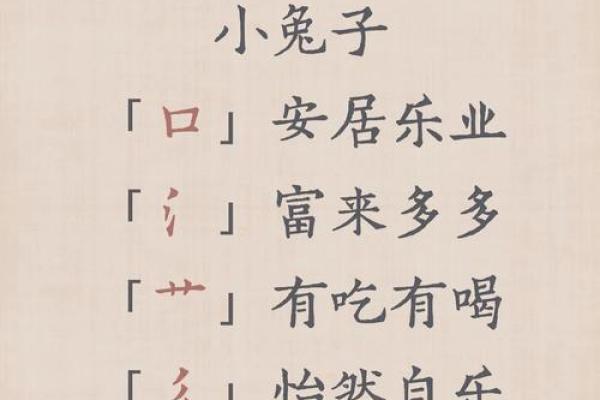 小兔子
「口」安居乐业
「氵」富来多多
「艹」有吃有喝
「」怡然自乐